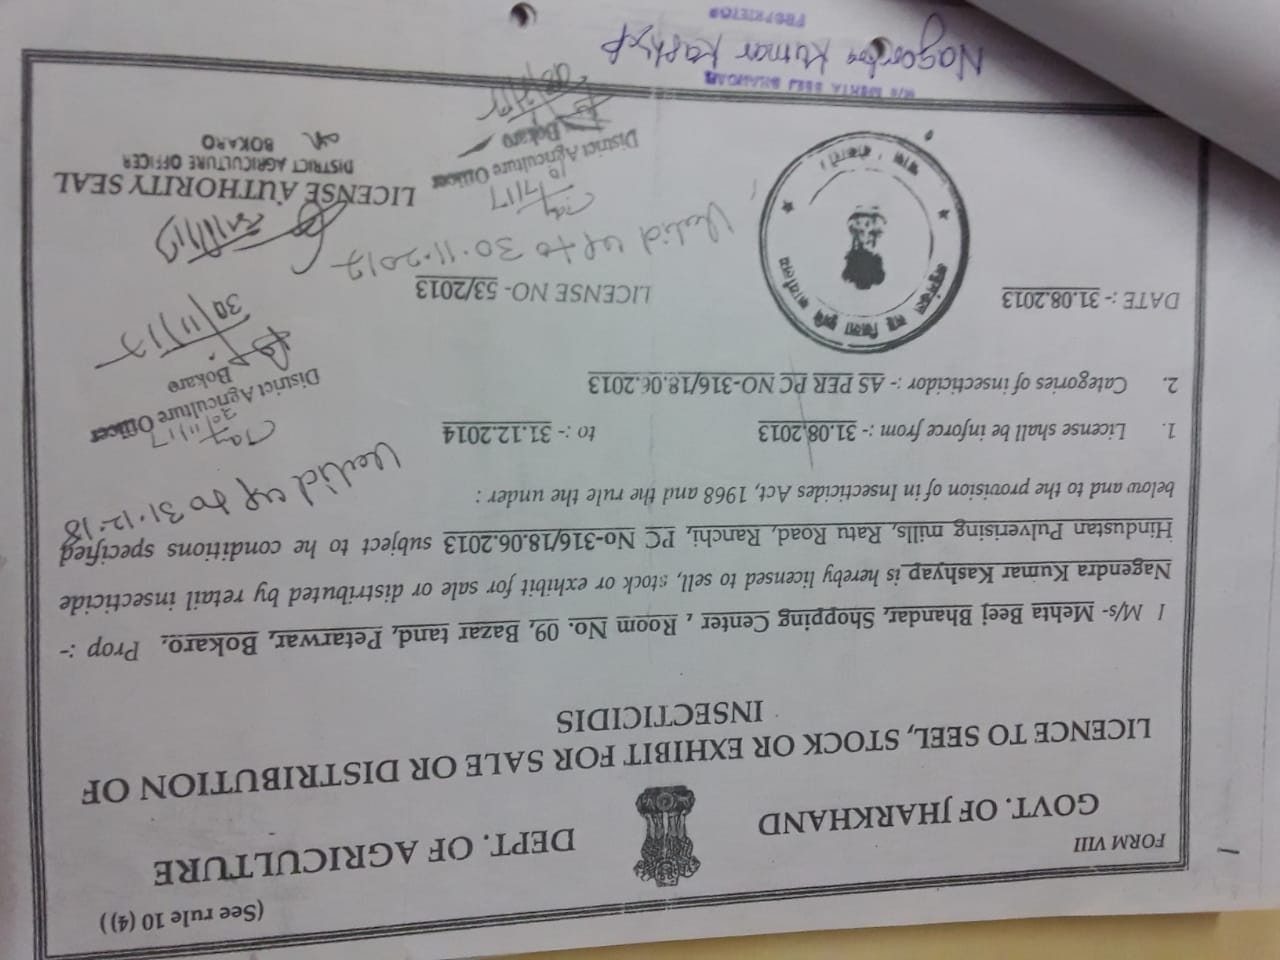 (See rule 10 (4))
FORM VIII
GOVT. OF JHARKHAND DEPT. OF AGRICULTURE
LICENCE TO SEEL, STOCK OR EXHIBIT FOR SALE OR DISTRIBUTION OF
INSECTICIDIS
1 M/s- Mehta Beej Bhandar, Shopping Center , Room No. 09, Bazar tand, Petarwar, Bokaro, Prop :-
Nagendra Kumar Kashyap is hereby licensed to sell, stock or exhibit for sale or distributed by retail insecticide
Hindustan Pulverising mills, Ratu Road, Ranchi, PC No-316/18.06.2013 subject to he conditions specified
below and to the provision of in Insecticides Act, 1968 and the rule the under :
Valid up to 31.12.18
1. License shall be inforce from :- 31.08.2013 to :- 31.12.2014
30/11/17
District Agriculture Officer
Bokaro
30/11/17
2. Categories of insecticidor :- AS PER PC NO-316/18.06.2013
DATE :- 31.08.2013 LICENSE NO- 53/2013
Valid up to 30.11.2017
LICENSE AUTHORITY SEAL
DISTRICT AGRICULTURE OFFICER
BOKARO
10/7/17
District Agriculture Officer
Bokaro
M/S MEHTA BEEJ BHANDAR
Nagendra Kumar Kashyap
PROPRIETOR